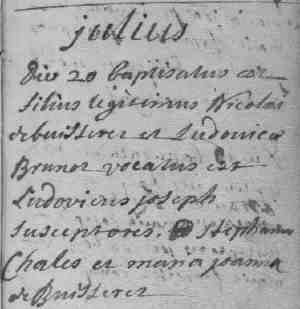 julius
die 20 baptisatus est
filius legitimus Nicolai
debuisseret et Ludovica
Brunot vocatus est
Ludovicus joseph
susceptores stephanus
Charles et maria joanna
de Buisseret